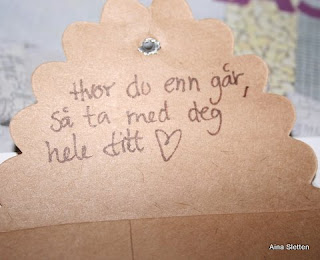 Hvor du enn går,
så ta med deg
hele ditt ♡
Aina Sletten